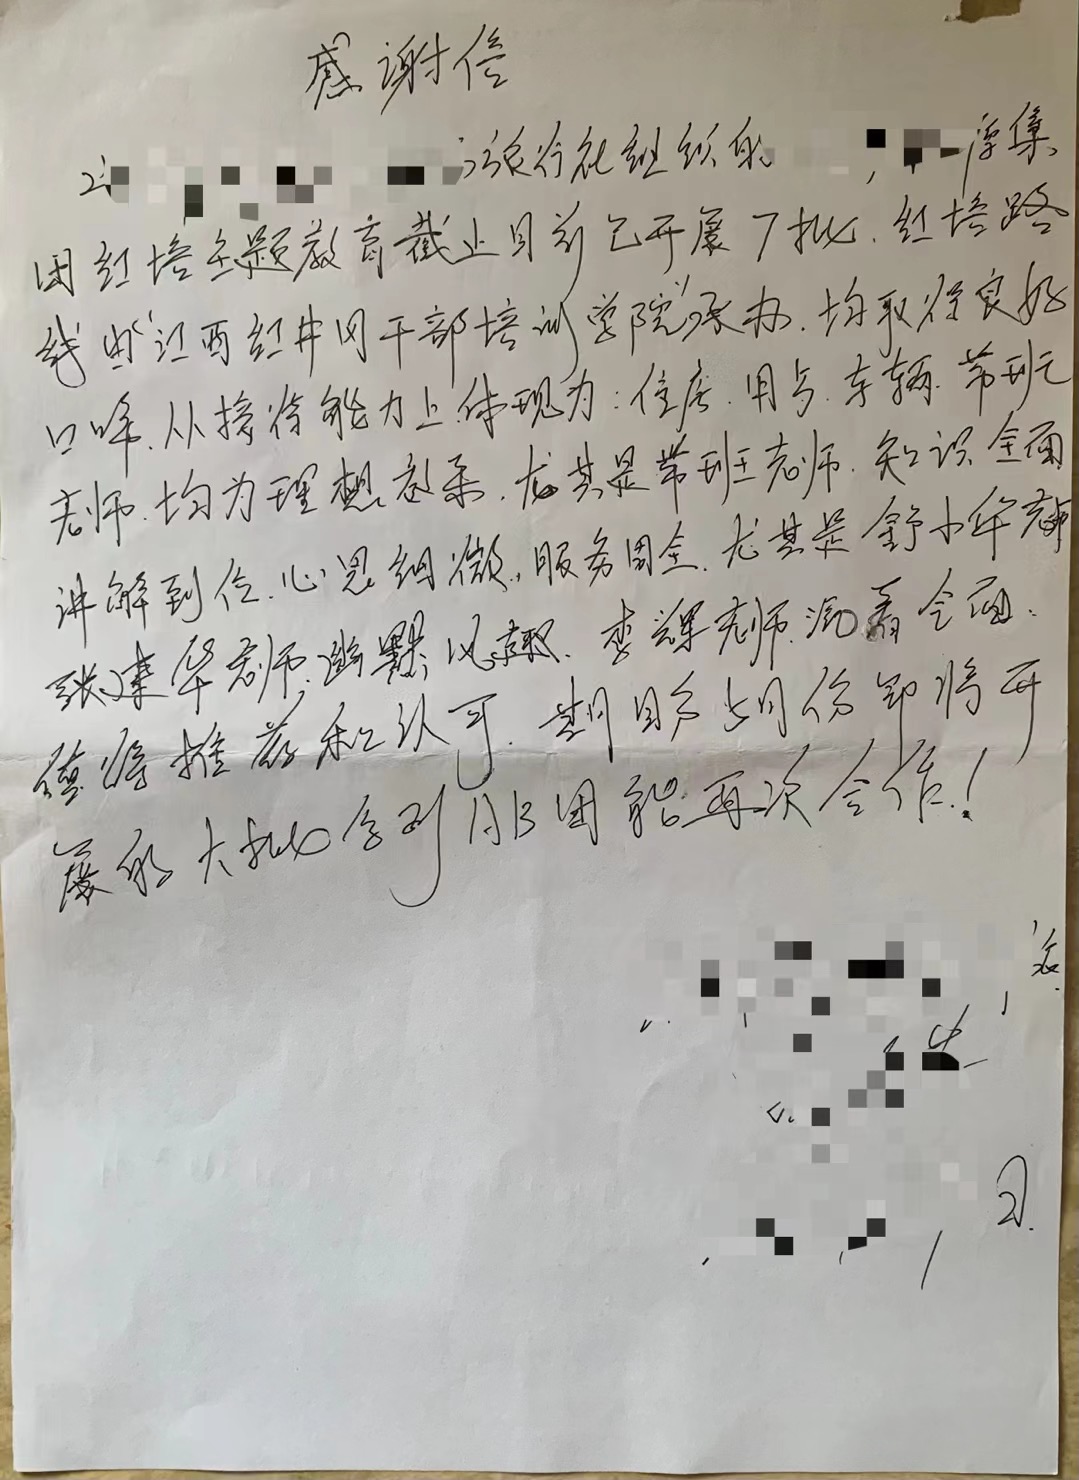 感谢信
旅行社组织的 集
团红培主题教育截止目前已开展7批.红培路
线由"江西红井冈干部培训学院"承办.均取得良好
口啤.从接待能力上体现为:住店.用写.车辆.带班
老师.均为理想效果.尤其是带班老师.知识全面
讲解到位.心思细微,服务周全.尤其是舒小华老师
张建华老师,幽默风趣.李辉老师.全面.
值得推荐和认可.期盼5月份即将开
展的大批系列AB团能再次合作!